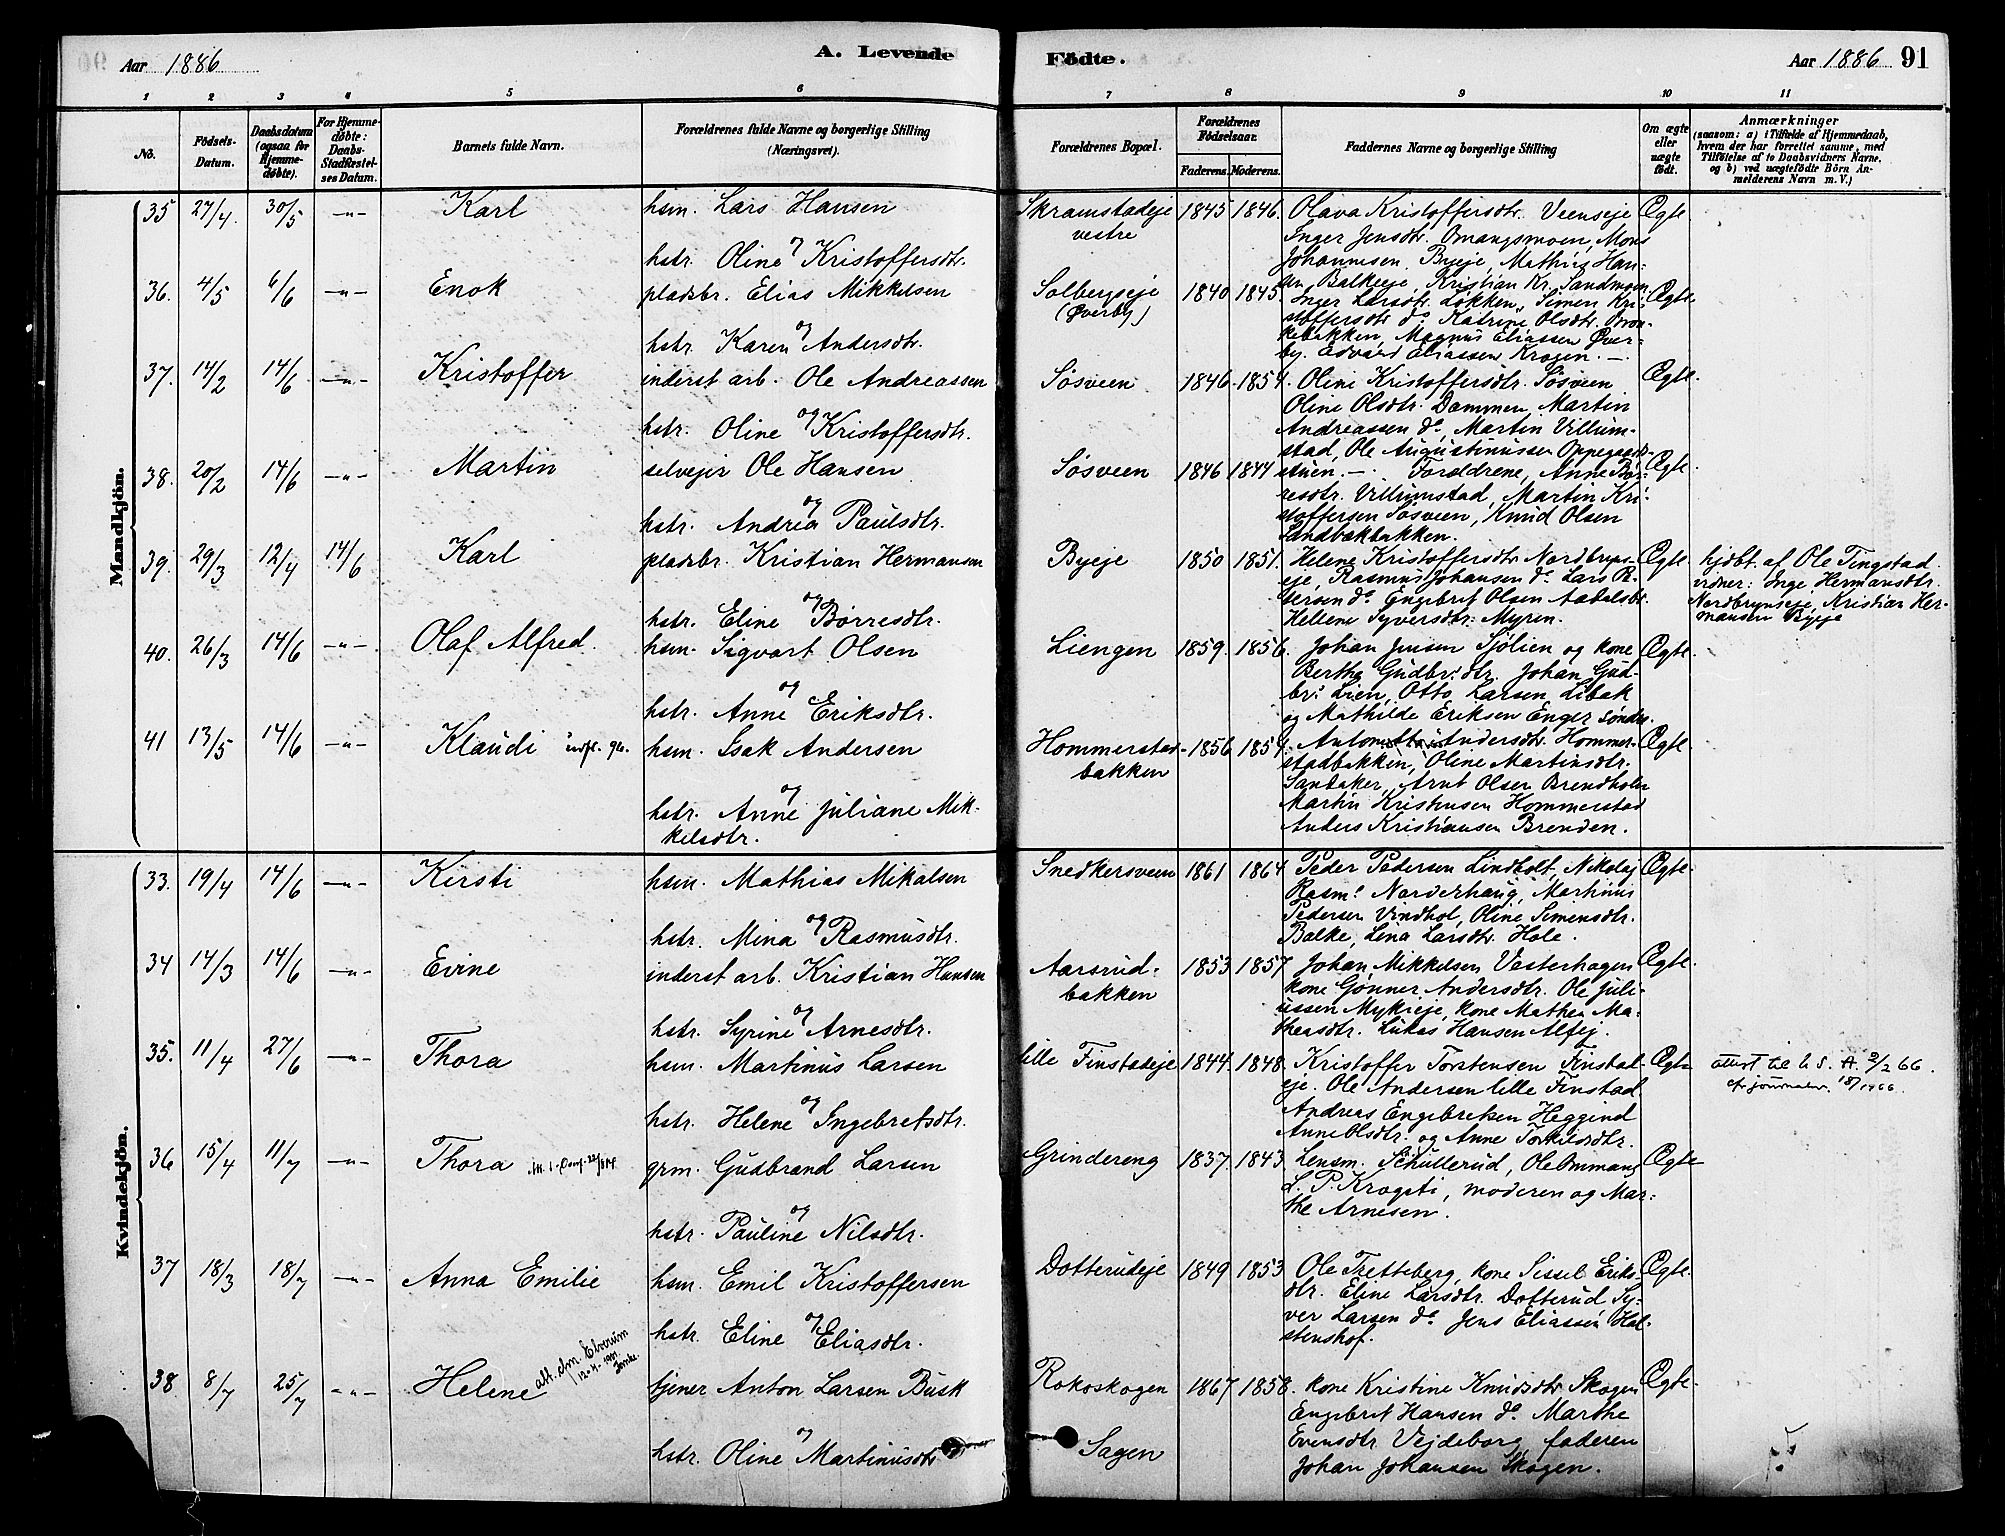 Aar 1886
A. Levende
Födte.
Aar 1886
91
1 2 3 4 5 6 7 8 9 10 11
No.
Födsels-Datum.
Daabsdatum (ogsaa for Hjemmedøbte).
For Hjemmedøbte: Daabs-Stadfæstelses Datum.
Barnets fulde Navn.
Forældrenes fulde Navne og borgerlige Stilling (Næringsvei).
Forældrenes Bopæl.
Forældrenes Födselsaar.
Faderens. Moderens.
Faddernes Navne og borgerlige Stilling
Om ægte eller uægte födt.
Anmærkninger
(saasom: a) i Tilfælde af Hjemmedaab, hvem der har forrettet samme, med Tilføielse af to Daabsvidners Navne, og b) ved uægtefødte Börn Anmelderens Navn m. V.)
Mandkjön.
35 27/4. 30/5 -"- Karl hsm. Lars Hansen
og
hstr. Oline Kristoffersdtr.
Skramstadeje vestre 1845 1846. Olava Kristoffersdtr. Veenseje Ægte
Inger Jensdtr. Omangsmoen, Mons
Johannesen Byeje, Mathis Han-
sen Balkeeje, Kristian Kr. Sandmoen
36. 4/5 6/6 -"- Enok pladsbr. Elias Mikkelsen
og
hstr. Karen Andersdtr.
Solbergseje (Øverby) 1840 1845. Inger Larsdtr. Løkken, Simen Kri- Ægte
stoffersdtr do Katrine Olsdtr.
kebakken, Magnus Eliassen Øver-
by. Edvard Eliassen Krogen. -.
37. 14/2 14/6 -"- Kristoffer inderst arb. Ole Andreassen
og
hstr. Oline Kristoffersdtr.
Søsveen 1846. 1854. Oline Kristoffersdtr. Søsveen Ægte.
Oline Olsdtr. Dammen, Martin
Andreassen do, Martin Villum-
stad, Ole Augustinussen Oppegaard-
38. 20/2 14/6 -"- Martin selvejer Ole Hansen
og
hstr. Andrea Paulsdtr.
Søsveen 1846 1844 stuen. -. Forældrene, Anne Bør- Ægte.
resdtr. Villumstad, Martin Kri-
stoffersen Søsveen, Knud Olsen
Sandbækbakken.
39. 29/3 12/4 14/6 Karl pladsbr. Kristian Hermansen
og
hstr. Eline Børresdtr.
Byeje 1850 1851. Helene Kristoffersdtr Nordbryns- Ægte.
eje, Rasmus Johansen do. Lars P-
tersen do Engebret Olsen Aadalsbr.
Helene Syversdtr. Myren.
hjdbt. af Ole Tingstad.
vidner: Inge Hermansdtr.
Nordbrynseje, Kristian Her-
mansen Byeje
40. 26/3 14/6 -"- Olaf Alfred. hsm. Sigvart Olsen
og
hstr. Anne Eriksdtr.
Liengen 1859. 1856. Johan Jensen Sjølien og kone Ægte.
Berthe Gudbr: dtr. Johan Gud-
br: Lien, Otto Larsen Libak
og Mathilde Eriksen Enger søndre.
41 13/5 14/6 -"- Klaudi hsm. Isak Andersen
og
hstr. Anne Juliane Mik-
kelsdtr.
Hommerstad-
bakken 1856 1854. Antonette Andersdtr. Hommer- Ægte
stadbakken, Oline Martinsdtr.
Sandaker, Arnt Olsen Brendholen
Martin Kristiansen Hommerstad
Anders Kristiansen Brenden.
Kvindekjön.
33. 19/4 14/6 -"- Kirsti hsm. Mathias Mikalsen
og
hstr. Mina Rasmusdtr.
Snedkersveen 1861 1864 Peder Pedersen Lindholt, Nikolaj Ægte.
Rasm: Norderhaug, Martinus
Pedersen Vindhol, Oline Simensdtr.
Balke, Lina Larsdtr. Hole.
34 14/3 14/6 -"- Evine inderst arb. Kristian Hansen
og
hstr. Syrine Arnesdtr.
Aarsrud-
bakken 1853 1857 Johan Mikkelsen Vesterhagen Ægte.
kone Gønner Andersdtr. Ole Juli-
ussen Mykleje, kone Mathea Ma-
theasdtr. Lukas Hansen Alfej.
35. 11/4 27/6 -"- Thora hsm. Martinus Larsen
og
hstr. Helene Ingebretsdtr.
lille Finstadeje 1844. 1848. Kristoffer Torstensen Finstad- Ægte
eje. Ole Andersen lille Finstad
Andreas Engebretsen Heggend
Anne Olsdtr. og Anne Torkilsdtr.
attest til 2/2 66.
cfr journalnr. 18/1966.
36 15/4 11/7 -"- Thora grm. Gudbrand Larsen
og
hstr. Pauline Nilsdtr.
Grindereng 1837. 1843 Lensm. Schullerud, Ole Ommang Ægte
L. P. Krogsti, moderen og Mar-
the Arnesen.
37 18/3 18/7 -"- Anna Emilie hsm. Emil Kristoffersen
og
hstr. Eline Eliasdtr.
Dotterudeje 1849 1853 Ole Tretteberg, kone Sissel Eriks- Ægte.
dtr. Eline Larsdtr. Dotterud Sy-
ver Larsen do Jens Eliassen Hol-
stenshof.
38 8/7 25/7 -"- Helene att. dm. Elverum tjener Anton Larsen Busk
og
hstr. Oline Martinusdtr
Rokoskogen
Sagen 1867 1858. kone Kristine Knudsdtr Skogen Ægte.
Engebret Hansen do. Marthe
Evensdtr Vejdeborg, faderen
Johan Johansen Skogen.